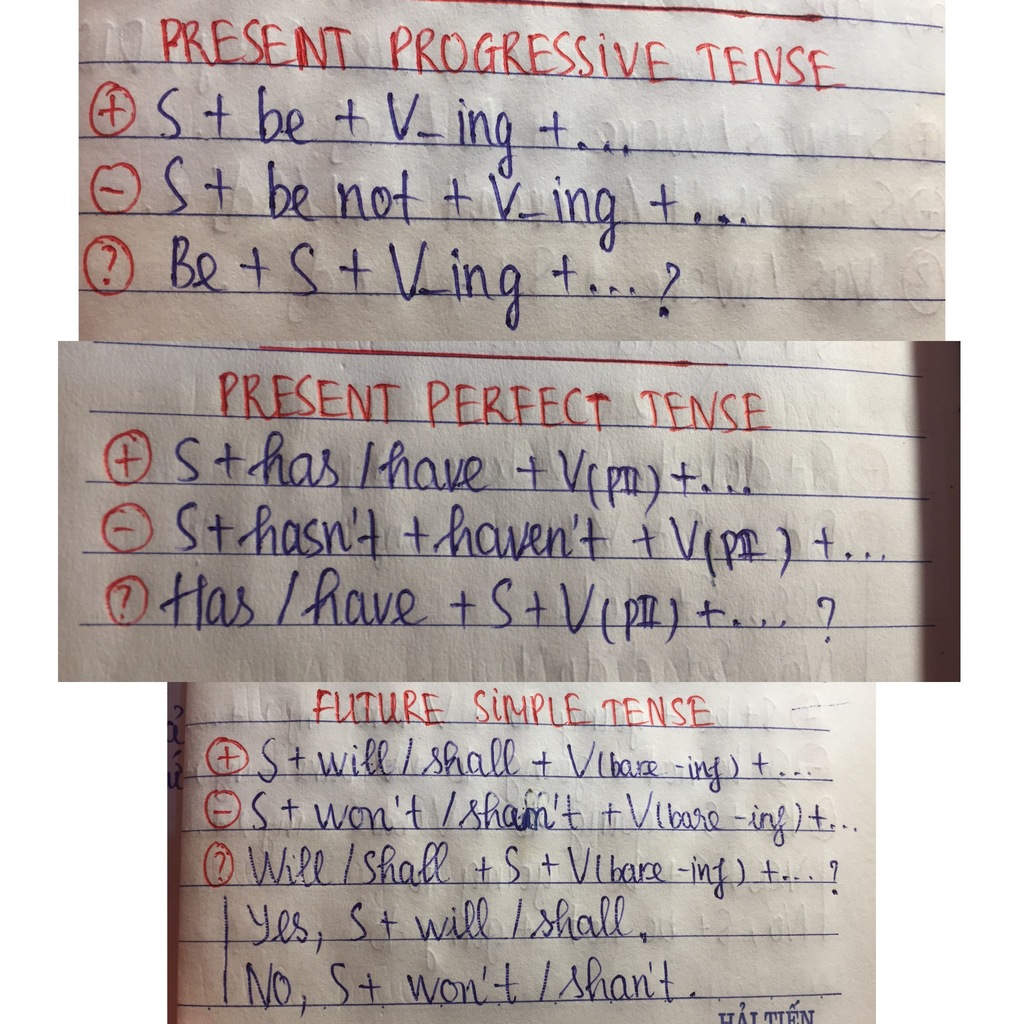 PRESENT PROGRESSIVE TENSE
(+) S + be + V_ing +...
(-) S + be not + V_ing +...
(?) Be + S + V_ing +...?
PRESENT PERFECT TENSE
(+) S + has / have + V(PII) +...
(-) S + hasn't + haven't + V(PII) +...
(?) Has / have + S + V(PII) +....?
FUTURE SIMPLE TENSE
(+) S + will / shall + V(bare-inf) +...
(-) S + won't / shan't + V(bare-inf) +...
(?) Will / shall + S + V(bare-inf) +...?
Yes, S + will / shall.
No, S + won't / shan't.
HẢI TIẾN